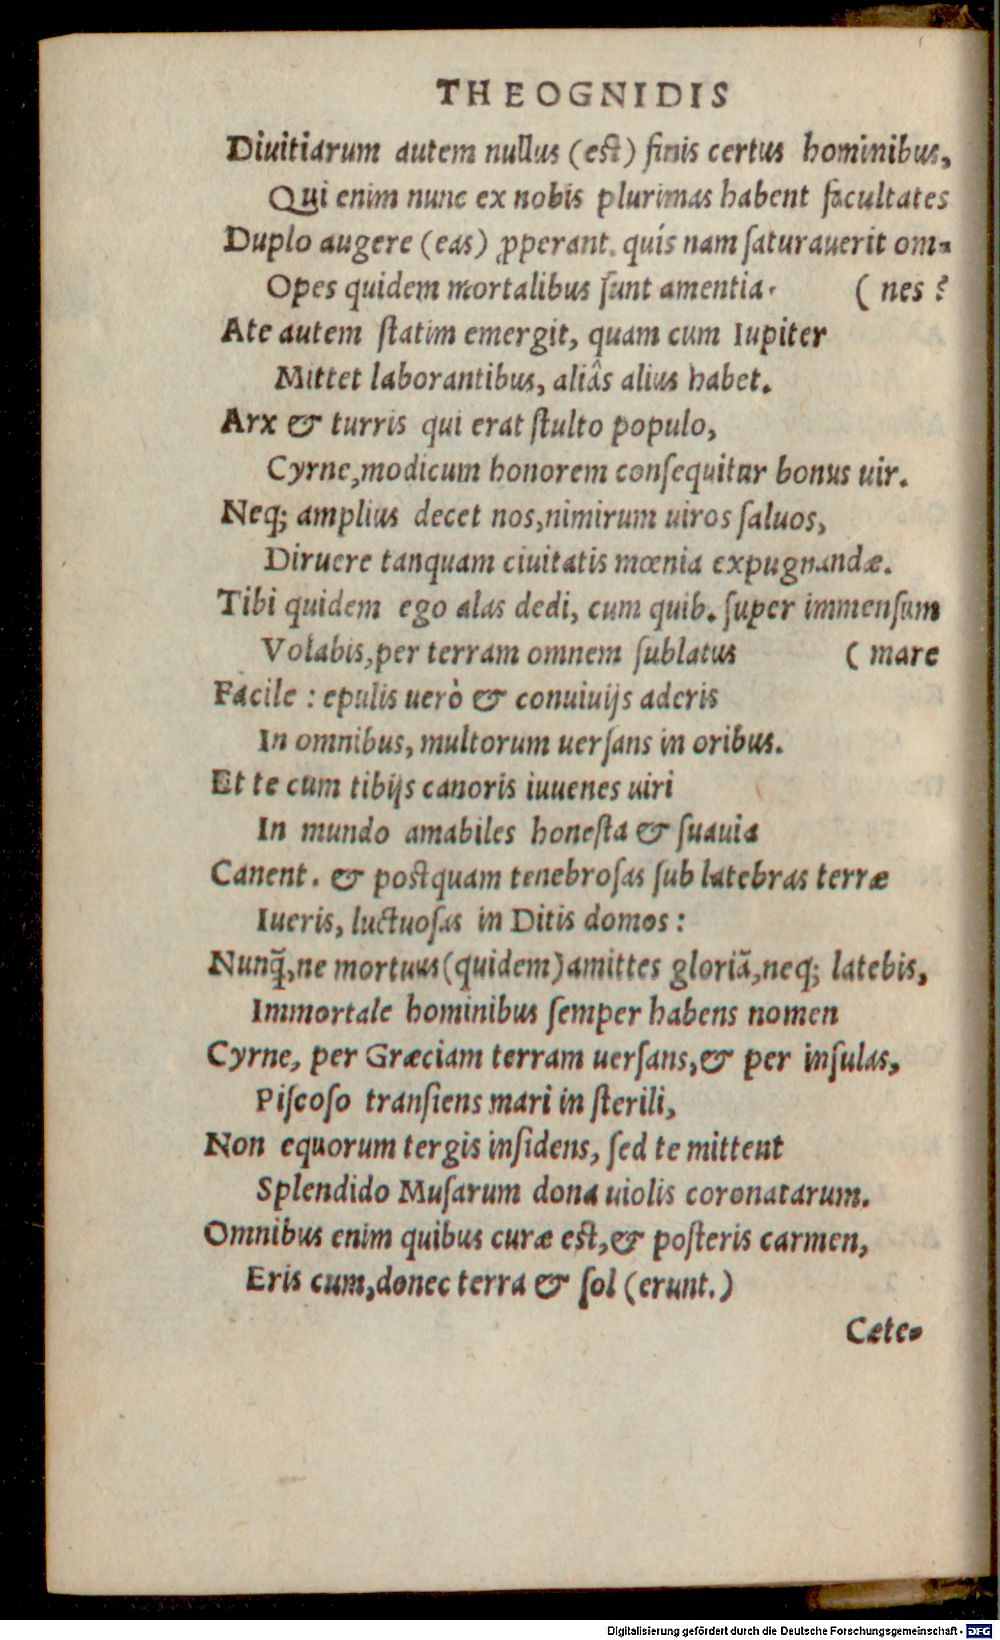 THEOGNIDIS
Diuitiarum autem nullus (est) finis certus hominibus,
Qui enim nunc ex nobis plurimas habent facultates
Duplo augere (eas) ꝓperant. quis nam saturauerit om-
Opes quidem mortalibus sunt amentia. ( nes ?
Ate autem statim emergit, quam cum Iupiter
Mittet laborantibus, aliâs alius habet.
Arx & turris qui erat stulto populo,
Cyrne, modicum honorem consequitur bonus uir.
Neq; amplius decet nos, nimirum uiros saluos,
Diruere tanquam ciuitatis mœnia expugnandæ.
Tibi quidem ego alas dedi, cum quib. super immensum
Volabis, per terram omnem sublatus ( mare
Facile : epulis uerò & conuiuijs aderis
In omnibus, multorum uersans in oribus.
Et te cum tibijs canoris iuuenes uiri
In mundo amabiles honesta & suauia
Canent. & postquam tenebrosas sub latebras terræ
Iueris, luctuosas in Ditis domos :
Nunq̃, ne mortuus (quidem) amittes gloriã, neq; latebis,
Immortale hominibus semper habens nomen
Cyrne, per Græciam terram uersans, & per insulas,
Piscoso transiens mari in sterili,
Non equorum tergis insidens, sed te mittent
Splendido Musarum dona uiolis coronatarum.
Omnibus enim quibus curæ est, & posteris carmen,
Eris cum, donec terra & sol (erunt.)
Cete-
Digitalisierung gefördert durch die Deutsche Forschungsgemeinschaft - DFG